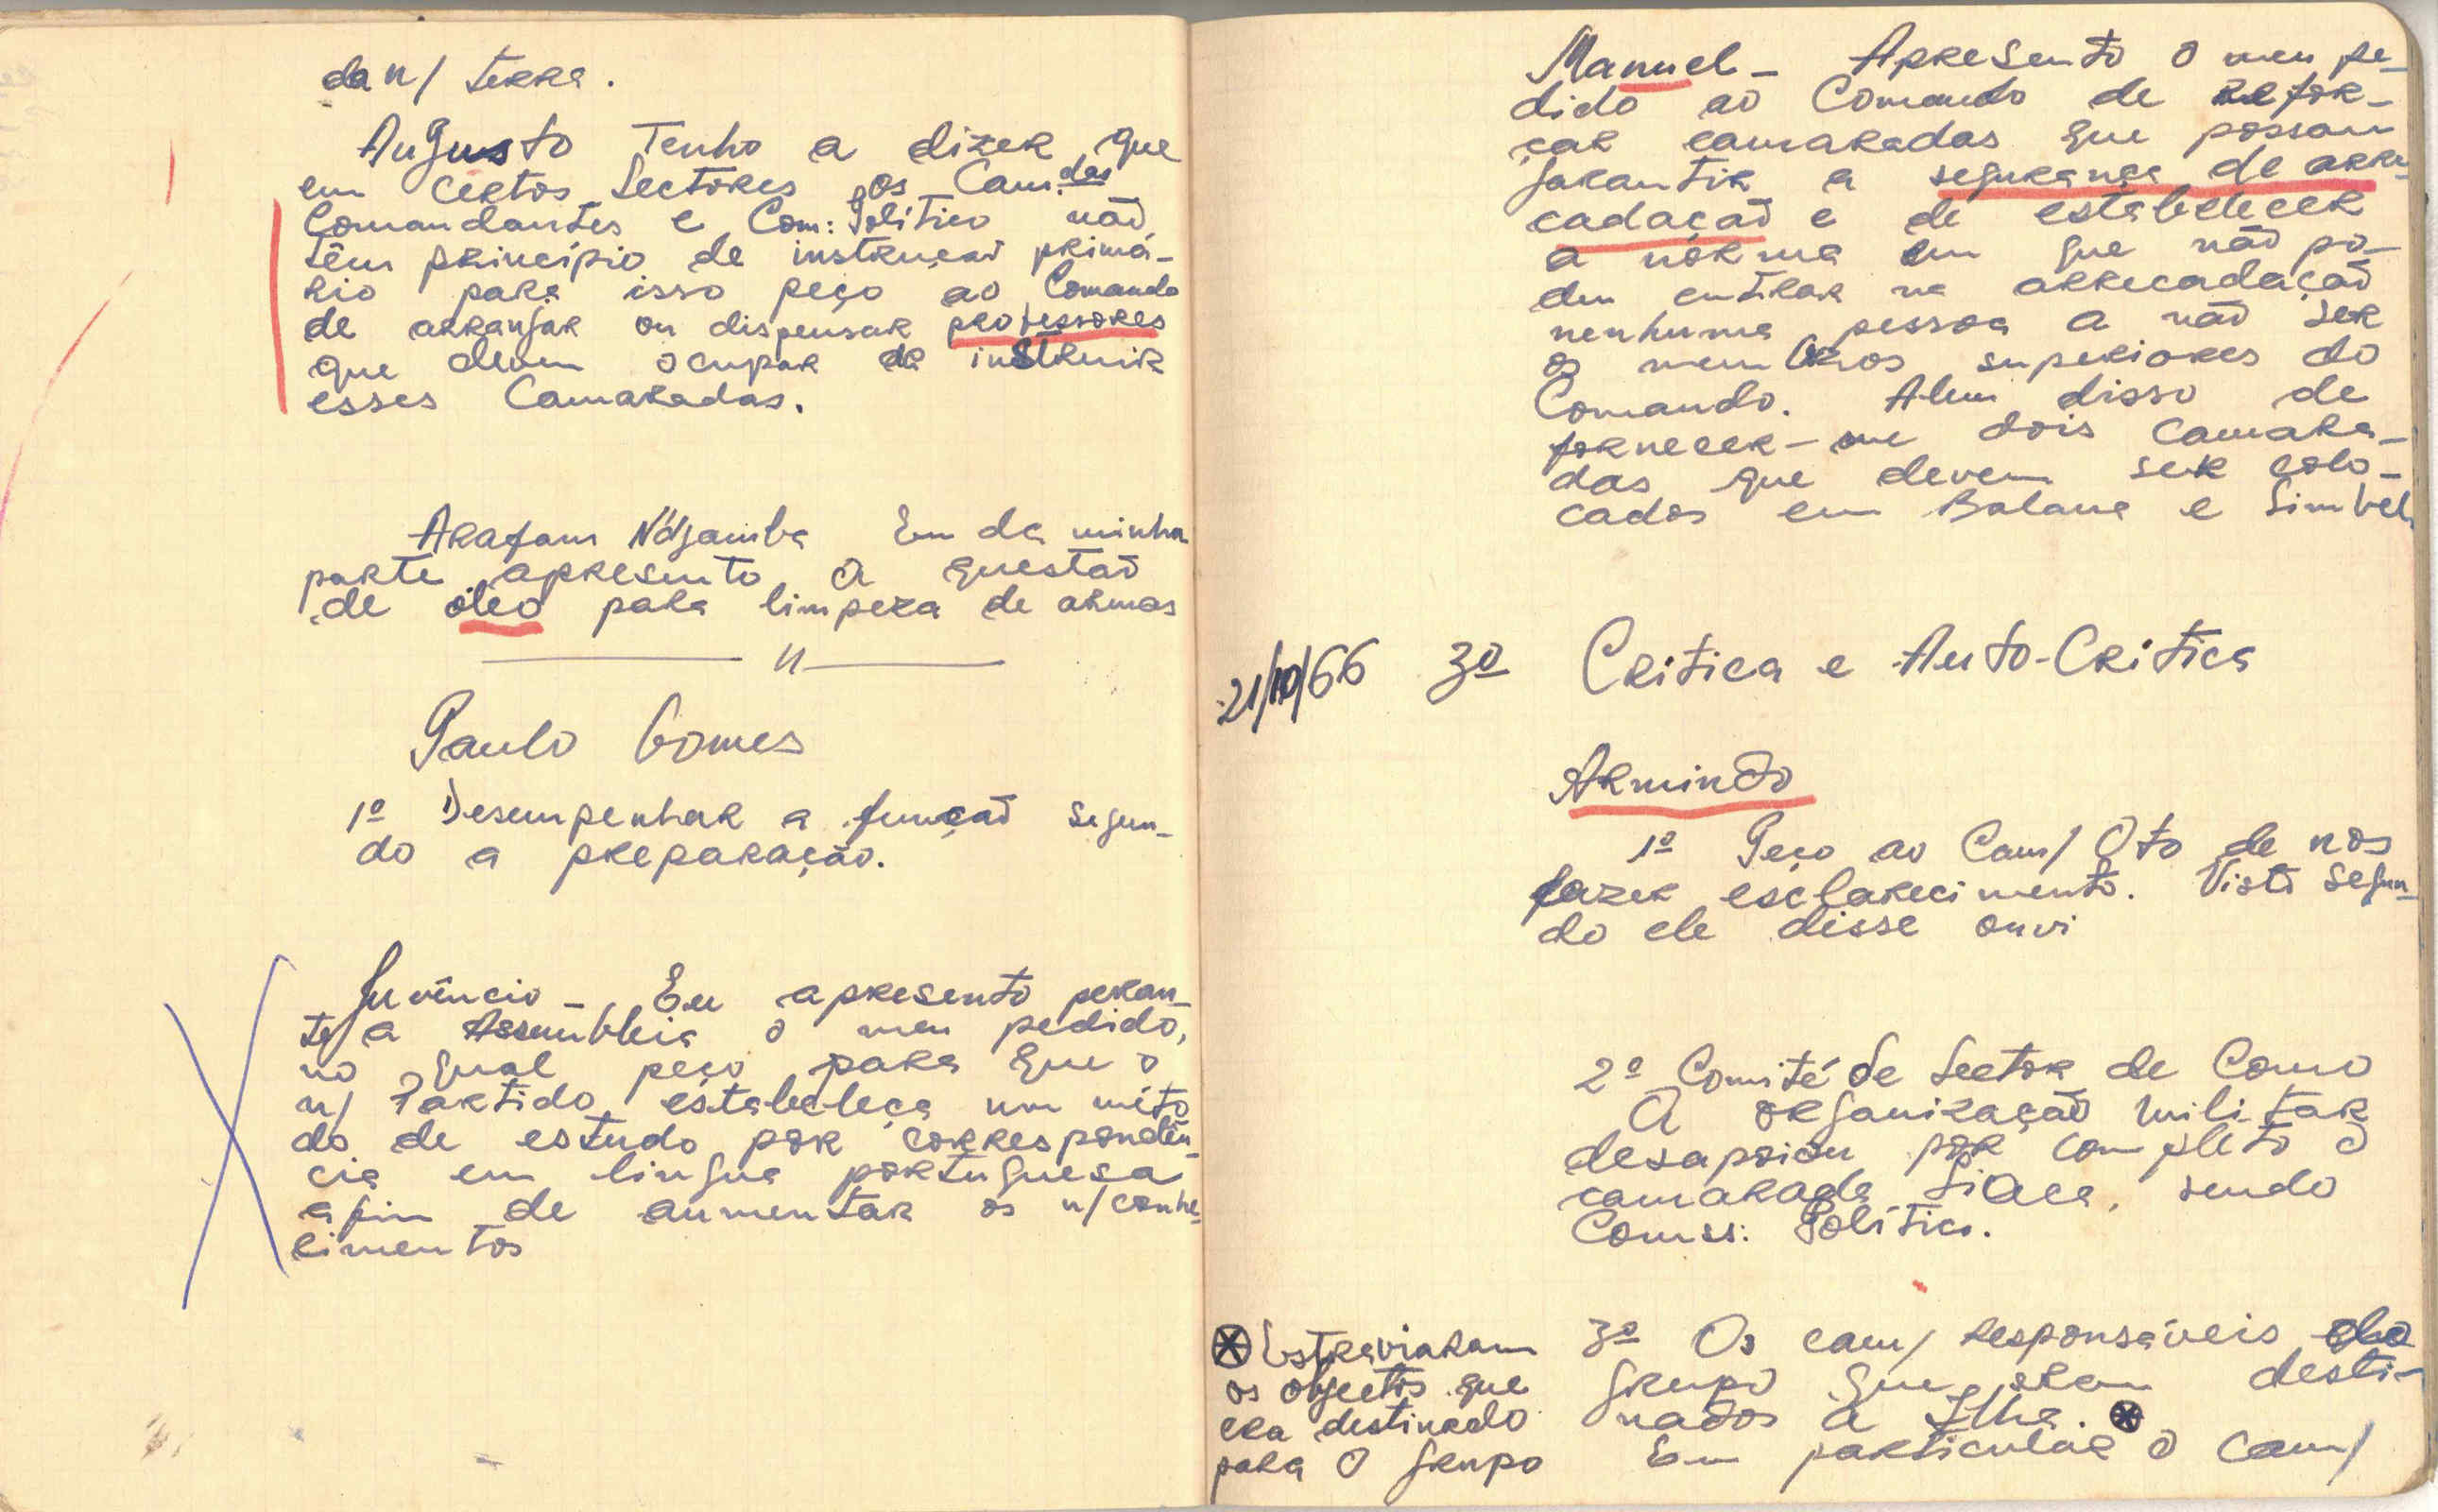 da n/ terra.
Augusto Tenho a dizer que
em certos Sectores, os Cam.das
Comandantes e Com: Político não
têm princípio de instrução primá-
rio para isso peço ao Comando
de arranjar ou dispensar professores
que devem ocupar de instruir
esses Camaradas.
Arafam N'djamba Eu da minha
parte apresento a questão
de óleo para limpeza de armas
—— // ——
Paulo Gomes
1º Desempenhar a função segun-
do a preparação.
Juvêncio - Eu apresento peran-
te/a Assembleia o meu pedido,
no qual peço para que o
n/ Partido estabeleça um méto
do de estudo por correspondên-
cia em lingua portuguesa
afim de aumentar os n/conhe-
cimentos
Manuel - Apresento o meu pe-
dido ao Comando de refor-
çar camaradas que possam
garantir a segurança de arre-
cadação e de estabelecer
a norma em que não po-
dem entrar na arrecadação
nenhuma pessoa a não ser
os membros superiores do
Comando. Alem disso de
fornecer-me dois camara-
das que devem ser colo-
cados em Balana e Simbeli
21/10/66 3º Critica e Auto-Critica
Armindo
1º Peço ao Cam/ Oto de nos
fazer esclarecimento. Visto segun-
do ele disse ouvi
2º Comité de Sector de Como
A organização militar
desapoiou por completo o
camarada , sendo
Comss: Político.
3º Os cam/ responsáveis do
grupo que eram desti-
nados a Ilha. ⊗
Em particular o Cam/
⊗ Estraviaram
os objectos que
era destinado
para o grupo